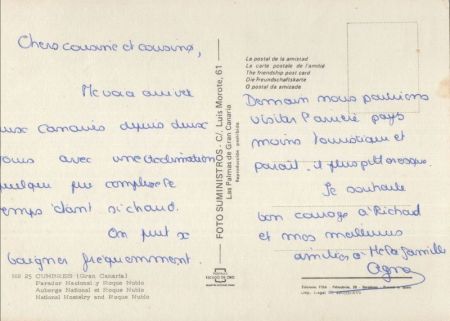 Chers cousine et cousins,
Me voici arrivée
aux Canaries depuis deux
jours avec une acclimatation
quelque peu complexe le
temps étant si chaud.
On peut
baigner fréquemment.
HB 25 CUMBRES (Gran Canaria)
Parador Nacional y Roque Nublo
Auberge National et Roque Nublo
National Hostelry and Roque Nublo
FOTO SUMINISTROS - C/. Luis Morote, 61
Las Palmas de Gran Canaria
Reproducción prohibida
La postal de la amistad
La carte postale de l'amitié
The friendship post card
Die Freundschaftskarte
O postal da amizade
Demain nous pourrions
visiter pays
moins touristique et
paraît-il plus pittoresque.
Je souhaite
bon courage à Richard
et mes meilleures
amitiés à la famille
Agnès